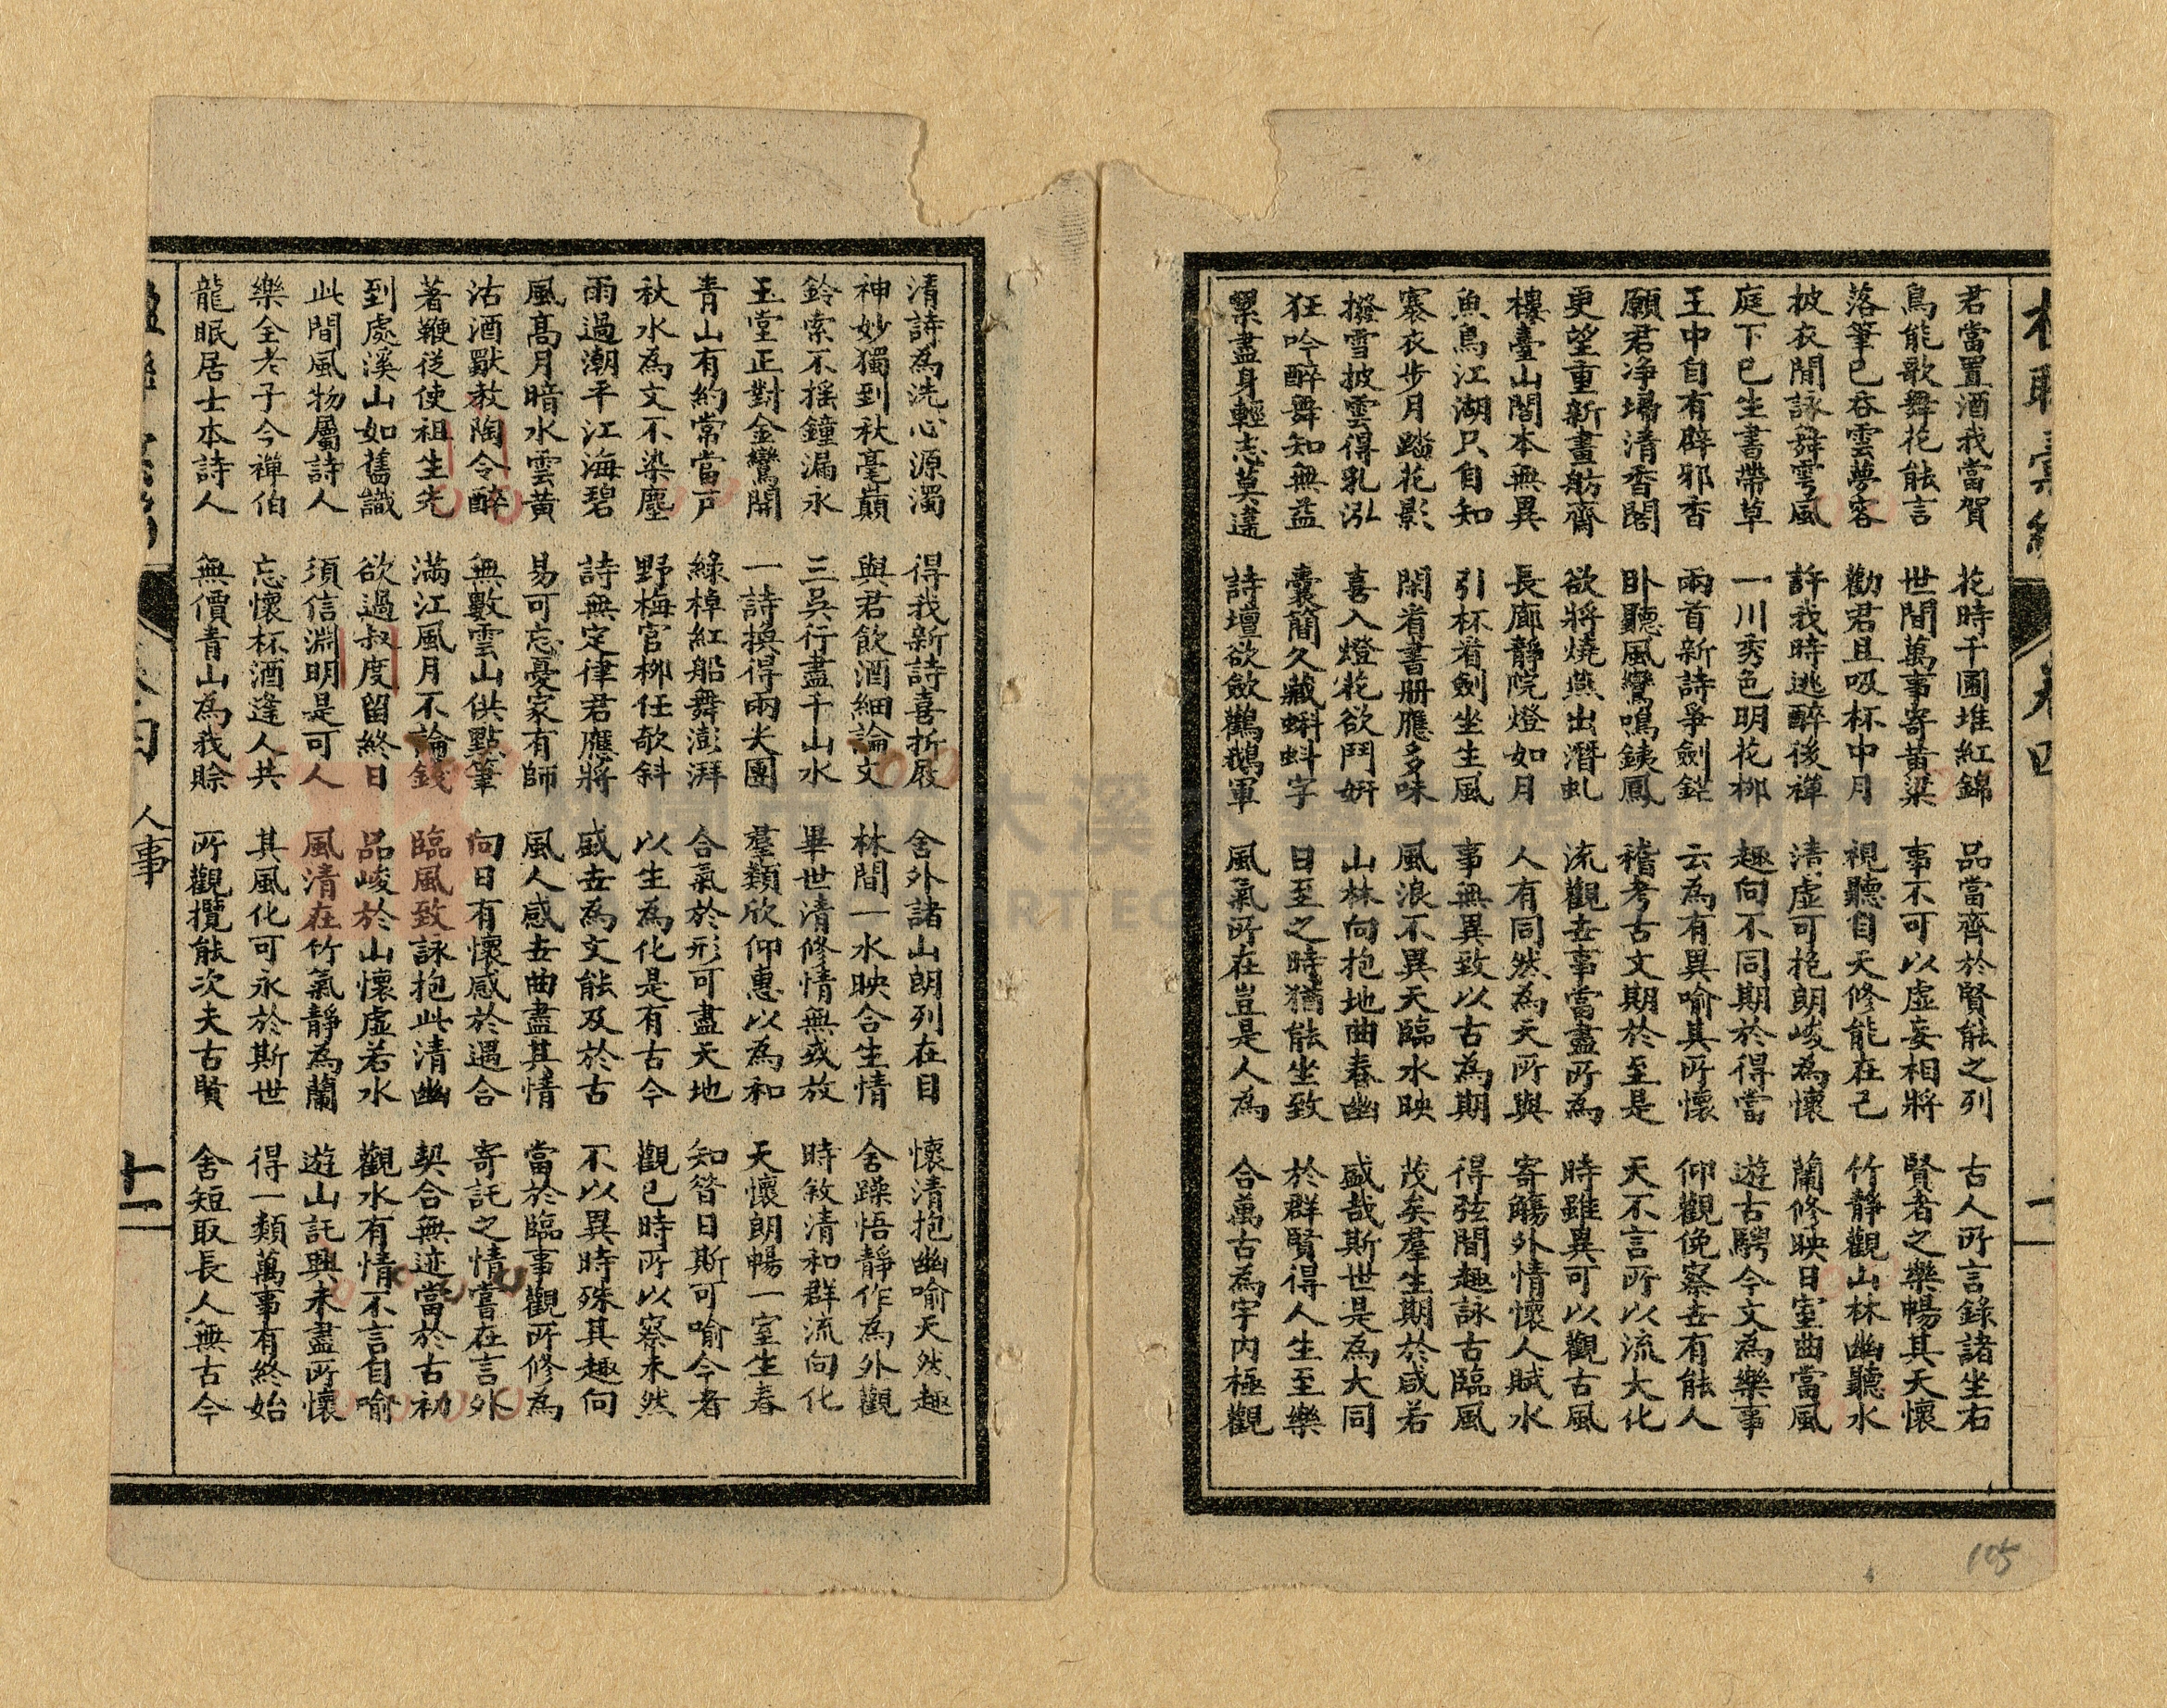 君當置酒我當賀 花時千圃堆紅錦 品當齊於賢能之列 古人所言錄諸坐右
鳥能歌舞花能言 世間萬事寄黃粱 事不可以虛妄相將 賢者之樂暢其天懷
落筆已吞雲夢客 勸君且吸杯中月 視聽自天修能在己 竹靜觀山林幽聽水
披衣閒詠舞雩風 許我時逃醉後禪 清虛可挹朗峻為懷 蘭修映日室曲當風
庭下已生書帶草 一川秀色明花柳 趣向不同期於得當 遊古騁今文為樂事
王中自有辟邪香 兩首新詩爭劍鋩 云為有異喻其所懷 仰觀俛察世有能人
願君净掃清香閣 卧聽風鸞鳴銕鳳 稽考古文期於至是 天不言所以流大化
更望重新畫舫齋 欲將燒燕出潛虬 流觀世事當盡所為 時雖異可以觀古風
樓臺山閣本無異 長廊靜院燈如月 人有同然為天所與 寄觴外情懷人賦水
魚鳥江湖只自知 引杯看劍坐生風 事無異致以古為期 得弦間趣詠古臨風
褰衣步月踏花影 閑看書册應多味 風浪不異天臨水映 茂矣羣生期於咸若
撥雪披雲得乳泓 喜入燈花欲鬥妍 山林向抱地曲春幽 盛哉斯世是為大同
狂吟醉舞知無益 囊簡久藏蝌蚪字 日至之時猶能坐致 於群賢得人生至樂
累盡身輕志莫違 詩壇欲斂鸛鵝軍 風氣所在豈是人為 合萬古為宇内極觀
105
清詩為洗心源濁 得我新詩喜折屐 舍外諸山朗列在目 懷清抱幽喻天然趣
神妙獨到秋毫巔 與君飲酒細論文 林間一水映合生情 舍躁悟靜作為外觀
鈴索不搖鐘漏永 三吳行盡千山水 畢世清修情無或放 時敘清和群流向化
玉堂正對金鸞開 一詩換得兩尖團 羣類欣仰惠以為和 天懷朗暢一室生春
青山有約常當戶 綠棹紅船舞澎湃 合氣於形可盡天地 知昝日斯可喻今者
秋水為文不染塵 野梅官柳任欹斜 以生為化是有古今 觀已時所以察未然
雨過潮平江海碧 詩無定律君應將 盛世為文能及於古 不以異時殊其趣向
風高月暗水雲黃 易可忘憂家有師 風人感世曲盡其情 當於臨事觀所修為
沽酒歡教陶令醉 無數雲山供點筆 向日有懷感於遇合 寄託之情嘗在言外
著鞭從使祖生先 滿江風月不論錢 臨風致詠抱此清幽 契合無迹當於古初
到處溪山如舊識 欲過叔度留終日 品峻於山懷虛若水 觀水有情不言自喻
此間風物屬詩人 須信淵明是可人 風清在竹氣靜為蘭 遊山託興未盡所懷
樂全老子今禪伯 忘懷杯酒逢人共 其風化可永於斯世 得一類萬事有終始
龍眠居士本詩人 無價青山為我賒 所觀攬能次夫古賢 舍短取長人無古今
人事
十二